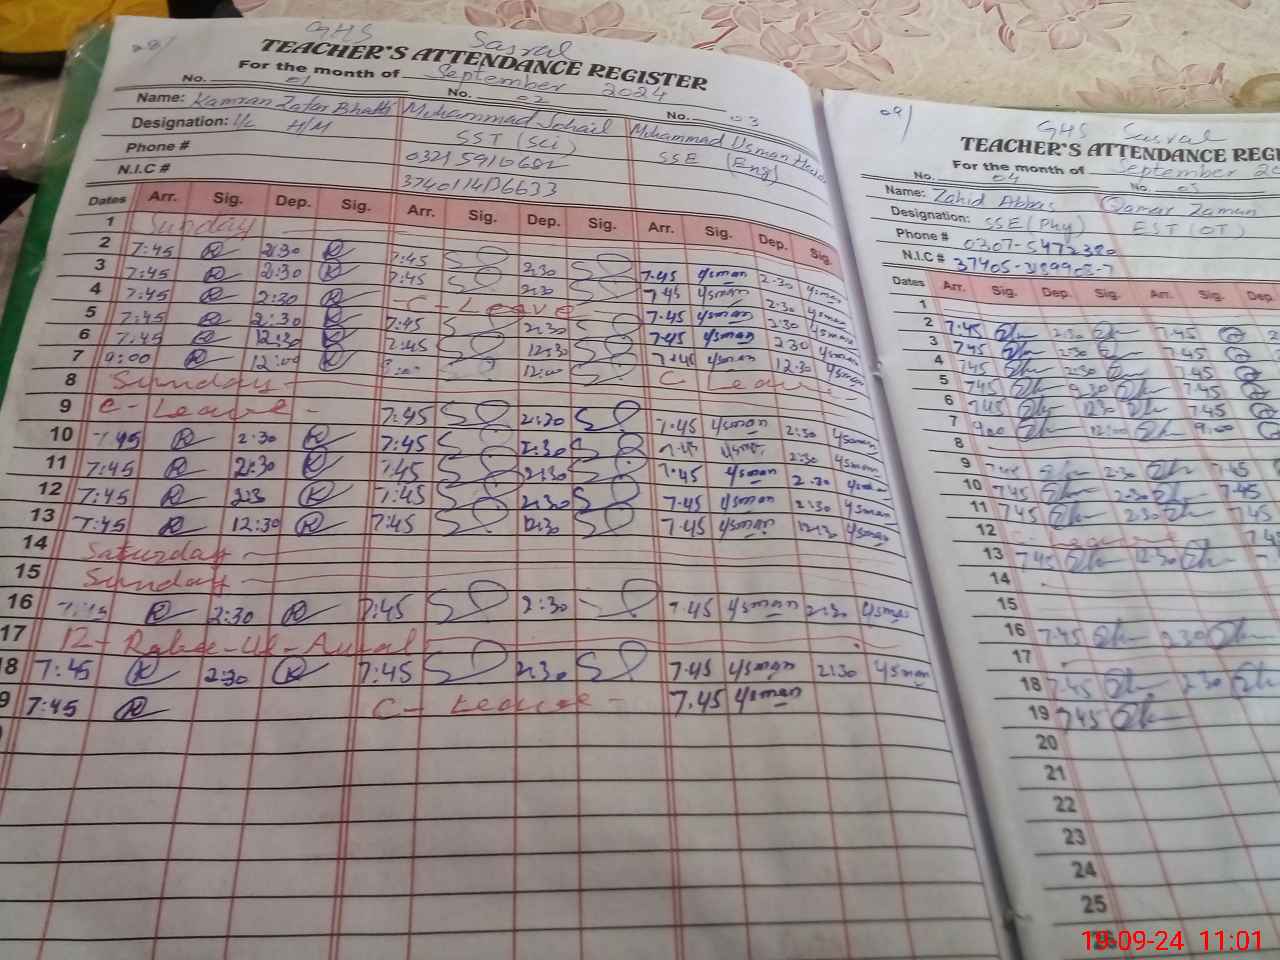 GHS Sasral
TEACHER'S ATTENDANCE REGISTER
For the month of September 2024
No. 01 No. 02 No. 03
Name: Kamran Zafar Bhatti Muhammad Sohail Muhammad Usman
Designation: I/c H/M SST (Sci) SSE (Eng)
Phone # 03215910682
N.I.C #
Dates Arr. Sig. Dep. Sig. Arr. Sig. Dep. Sig. Arr. Sig. Dep. Sig.
1 Sunday
2 7:45 2:30 7:45 2:30 7.45 Usman 2.30 Usman
3 7:45 2:30 7:45 2:30 7.45 Usman 2.30 Usman
4 7:45 2:30 - C - Leave 7.45 Usman 2:30 Usman
5 7:45 2:30 7:45 2:30 7.45 Usman 2.30 Usman
6 7:45 12:30 7:45 12:30 7.45 Usman 12.30 Usman
7 9:00 12:00 9:00 12:00 C Leave
8 Sunday
9 C - Leave - 7:45 2:30 7.45 Usman 2:30 Usman
10 7:45 2:30 7:45 2:30 7.45 Usman 2:30 Usman
11 7:45 2:30 7:45 2:30 7.45 Usman 2.30 Usman
12 7:45 2:3 7:45 2:30 7.45 Usman 2:30 Usman
13 7:45 12:30 7:45 12:30 7.45 Usman 12:30 Usman
14 Saturday
15 Sunday
16 7:45 2:30 7:45 2:30 7.45 Usman 2:30 Usman
17 12 - Rabee-Ul-Awal
18 7:45 2:30 7:45 2:30 7.45 Usman 2:30 Usman
9 7:45 C - Leave - 7.45 Usman
09/
GHS Sasral
TEACHER'S ATTENDANCE REGI
For the month of September 20
No. 04 No. 05
Name: Zahid Abbas Qamar Zaman
Designation: SSE (Phy) EST (OT)
Phone # 0307-5472320
N.I.C #
Dates Arr. Sig. Dep. Sig. Arr. Sig. Dep.
1
2 7:45 2:30 7:45
3 7:45 2:30 7:45
4 7:45 2:30 7:45
5 7:45 2:30 7:45
6 7:45 12:30 7:45
7 9:00 12:00 9:00
8
9 7:45 2:30 7:45
10 7:45 2:30 7:45
11 7:45 2:30 7:45
12 C - Leave
13 7:45 12:30
14
15
16 7:45 2:30
17
18 7:45 2:30
19 7:45
20
21
22
23
24
25
26
19-09-24 11:01